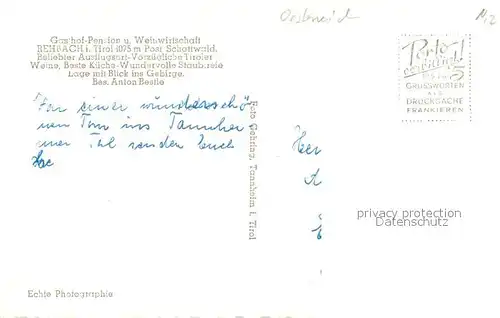 Oesterreich
Gasthof-Pension u. Weinwirtschaft
REHBACH i. Tirol 1075 m Post Schattwald.
Beliebter Ausflugsort-Vorzügliche Tiroler
Weine, Beste Küche-Wundervolle Staubfreie
Lage mit Blick ins Gebirge.
Bes. Anton Bestle
Von einer wunderschö-
nen Tour ins Tannhei-
mer Tal senden Euch
Foto Gehring, Tannheim i. Tirol
Porto
GRUSSWORTEN
ALS
DRUCKSACHE
FRANKIEREN
privacy protection
watermark
Echte Photographie